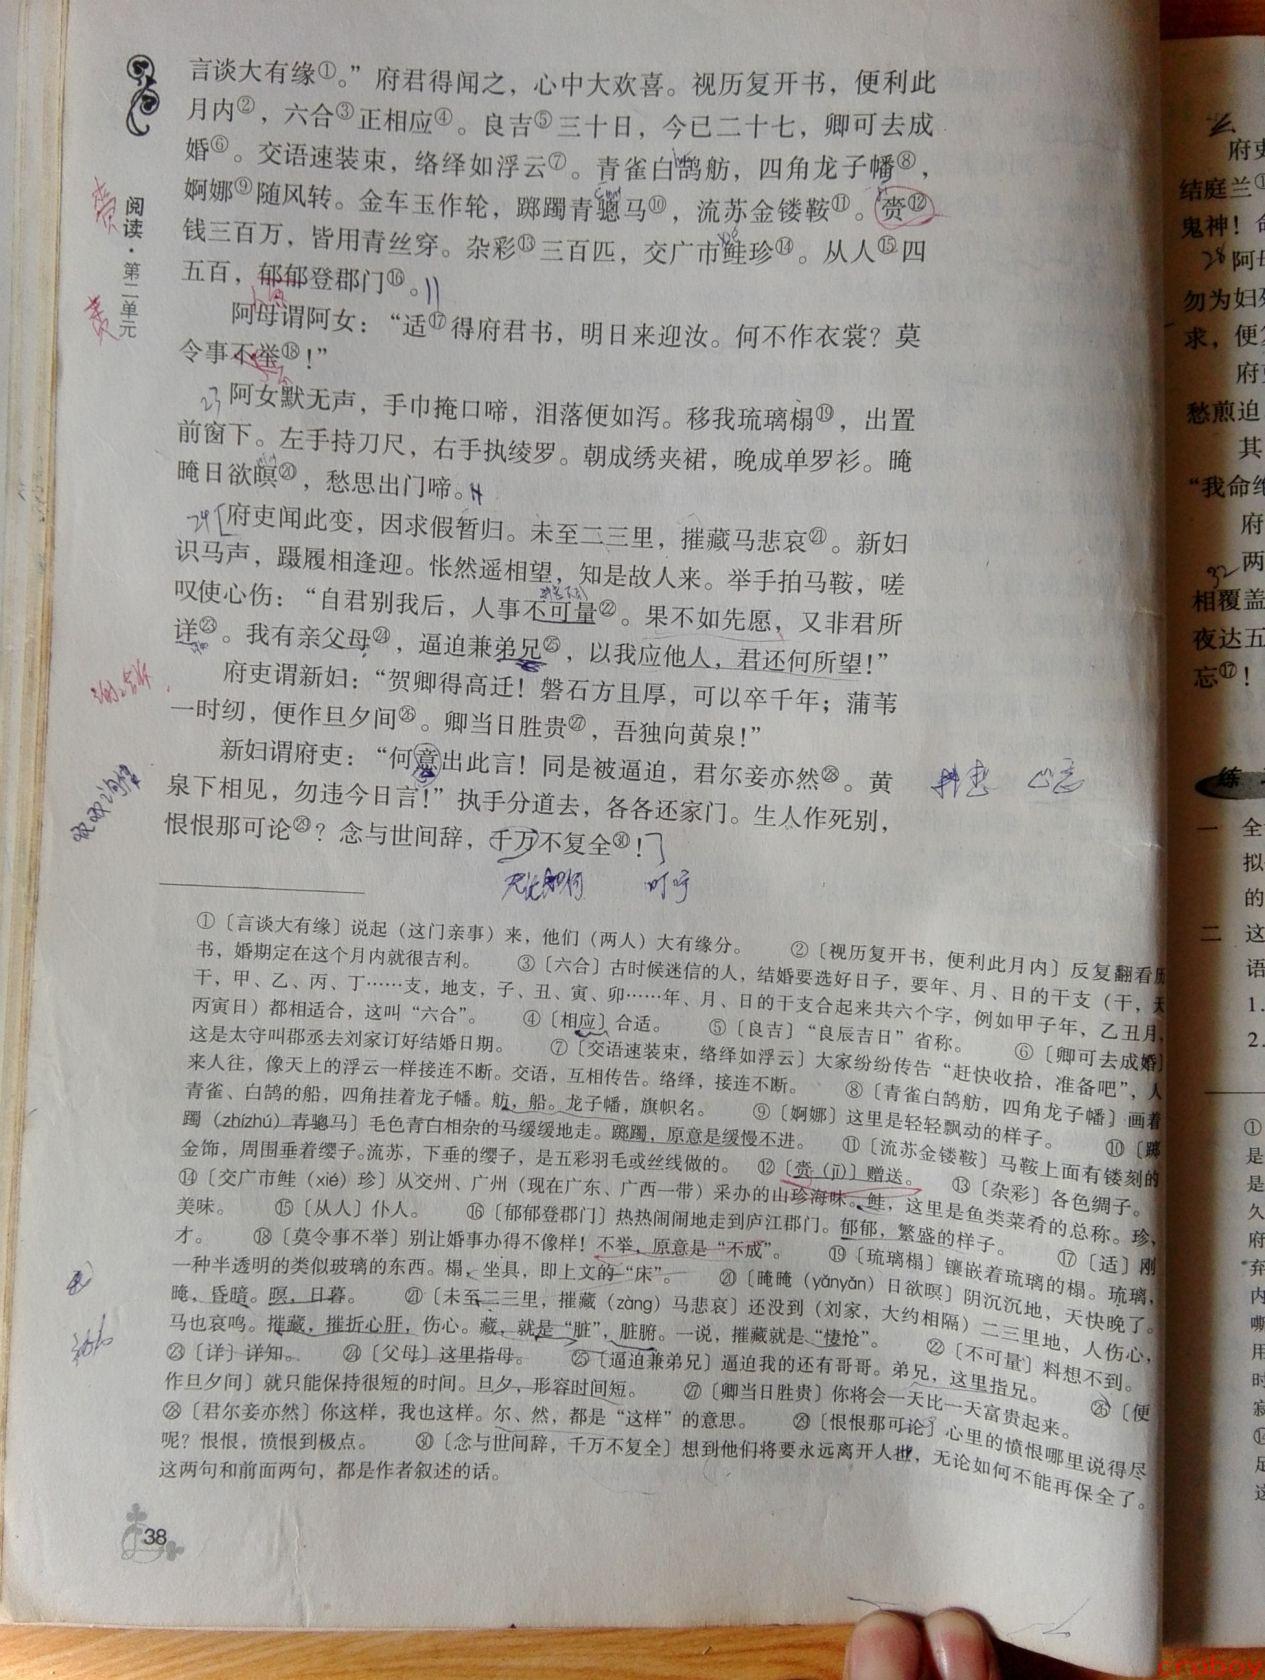 言谈大有缘①。”府君得闻之，心中大欢喜。视历复开书，便利此
月内②，六合③正相应④。良吉⑤三十日，今已二十七，卿可去成
婚⑥。交语速装束，络绎如浮云⑦。青雀白鹄舫，四角龙子幡⑧，
婀娜⑨随风转。金车玉作轮，踯躅青骢马⑩，流苏金镂鞍⑪。赍⑫
钱三百万，皆用青丝穿。杂彩⑬三百匹，交广市鲑珍⑭。从人⑮四
五百，郁郁登郡门⑯。
阿母谓阿女：“适⑰得府君书，明日来迎汝。何不作衣裳？莫
令事不举⑱！”
23 阿女默无声，手巾掩口啼，泪落便如泻。移我琉璃榻⑲，出置
前窗下。左手持刀尺，右手执绫罗。朝成绣夹裙，晚成单罗衫。晻
晻日欲暝⑳，愁思出门啼。
24 府吏闻此变，因求假暂归。未至二三里，摧藏马悲哀㉑。新妇
识马声，蹑履相逢迎。怅然遥相望，知是故人来。举手拍马鞍，嗟
叹使心伤：“自君别我后，人事不可量㉒。果不如先愿，又非君所
详㉓。我有亲父母㉔，逼迫兼弟兄㉕，以我应他人，君还何所望！”
府吏谓新妇：“贺卿得高迁！磐石方且厚，可以卒千年；蒲苇
一时纫，便作旦夕间㉖。卿当日胜贵㉗，吾独向黄泉！”
新妇谓府吏：“何意出此言！同是被逼迫，君尔妾亦然㉘。黄
泉下相见，勿违今日言！”执手分道去，各各还家门。生人作死别，
恨恨那可论㉙？念与世间辞，千万不复全㉚！
无论如何 叮咛
阅读·第二单元
①〔言谈大有缘〕说起（这门亲事）来，他们（两人）大有缘分。 ②〔视历复开书，便利此月内〕反复翻看历
书，婚期定在这个月内就很吉利。 ③〔六合〕古时候迷信的人，结婚要选好日子，要年、月、日的干支（干，天
干，甲、乙、丙、丁……支，地支，子、丑、寅、卯……年、月、日的干支合起来共六个字，例如甲子年，乙丑月，
丙寅日）都相适合，这叫“六合”。 ④〔相应〕合适。 ⑤〔良吉〕“良辰吉日”省称。 ⑥〔卿可去成婚〕
这是太守叫郡丞去刘家订好结婚日期。 ⑦〔交语速装束，络绎如浮云〕大家纷纷传告“赶快收拾，准备吧”，人
来人往，像天上的浮云一样接连不断。交语，互相传告。络绎，接连不断。 ⑧〔青雀白鹄舫，四角龙子幡〕画着
青雀、白鹄的船，四角挂着龙子幡。舫，船。龙子幡，旗帜名。 ⑨〔婀娜〕这里是轻轻飘动的样子。 ⑩〔踯
躅（zhízhú）青骢马〕毛色青白相杂的马缓缓地走。踯躅，原意是缓慢不进。 ⑪〔流苏金镂鞍〕马鞍上面有镂刻的
金饰，周围垂着缨子。流苏，下垂的缨子，是五彩羽毛或丝线做的。 ⑫〔赍（jī）〕赠送。 ⑬〔杂彩〕各色绸子。
⑭〔交广市鲑（xié）珍〕从交州、广州（现在广东、广西一带）采办的山珍海味。鲑，这里是鱼类菜肴的总称。珍，
美味。 ⑮〔从人〕仆人。 ⑯〔郁郁登郡门〕热热闹闹地走到庐江郡门。郁郁，繁盛的样子。 ⑰〔适〕刚
才。 ⑱〔莫令事不举〕别让婚事办得不像样！不举，原意是“不成”。 ⑲〔琉璃榻〕镶嵌着琉璃的榻。琉璃，
一种半透明的类似玻璃的东西。榻，坐具，即上文的“床”。 ⑳〔晻晻（yǎnyǎn）日欲暝〕阴沉沉地，天快晚了。
晻，昏暗。暝，日暮。 ㉑〔未至二三里，摧藏（zàng）马悲哀〕还没到（刘家，大约相隔）二三里地，人伤心，
马也哀鸣。摧藏，摧折心肝，伤心。藏，就是“脏”，脏腑。一说，摧藏就是“悽怆”。 ㉒〔不可量〕料想不到。
㉓〔详〕详知。 ㉔〔父母〕这里指母。 ㉕〔逼迫兼弟兄〕逼迫我的还有哥哥。弟兄，这里指兄。 ㉖〔便
作旦夕间〕就只能保持很短的时间。旦夕，形容时间短。 ㉗〔卿当日胜贵〕你将会一天比一天富贵起来。
㉘〔君尔妾亦然〕你这样，我也这样。尔、然，都是“这样”的意思。 ㉙〔恨恨那可论〕心里的愤恨哪里说得尽
呢？恨恨，愤恨到极点。 ㉚〔念与世间辞，千万不复全〕想到他们将要永远离开人世，无论如何不能再保全了。
这两句和前面两句，都是作者叙述的话。
38
府吏
结庭兰①
鬼神！
28 阿母
勿为妇死
求，便
府吏
愁煎迫
其
“我命绝
府
32 两
相覆盖
夜达五
忘⑰！
练
一 全
拟
的
二 这
语
1.
2.